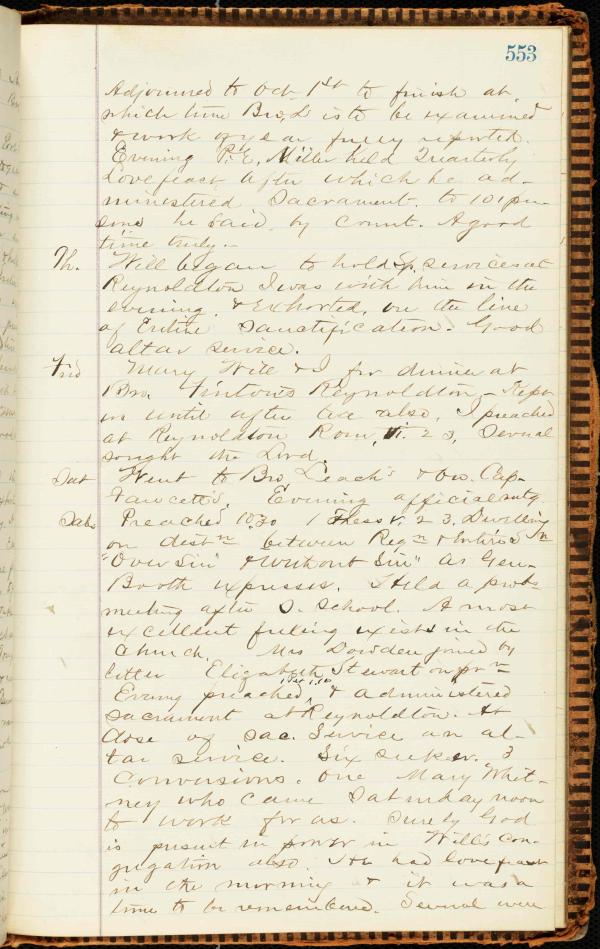 553
Adjourned to Oct 1st to finish at
which time Bro. L is to be examined
& work of year fully reported.
Evening P. E. Miller held Quarterly
Lovefeast after which he ad-
ministered Sacrament. to 101 per-
sons he said by count. A good
time truly.-
Th. Will began to hold Sp. services at
Reynoldton I was with him in the
evening. & Exhorted, on the line
of Entire Sanctification. Good
altar service.
Frid Mary, Wife & I for dinner at
Bro. Reynoldton, - Kept
on until after tea also. I preached
at Reynoldton Rom. VI. 23, Several
sought the Lord.
Sat Went to Bro Leach's & Cap.
Fawcett's. Evening official mtg.
Sab. Preached 10.30 1 Thess V. 23. Dwelling
on distn between Regn & Entire Sn
"Over Sin" & "Without Sin" as Gen-
Booth expresses. Held a probs
meeting after S. School. A most
excellent feeling exists in the
Church. Mrs Dowden joined by
letter Elizabeth Stewart on prn
Evening preached & administered
Sacrament at Reynoldton. At
close of Sac. Service an al-
tar service. Six seekers. 3
Conversions. One Mary Whit-
ney who came Saturday noon
to work for us. Surely God
is present in power in Will's Con-
gregation also. He had lovefeast
in the morning & it was a
time to be remembered. Several were